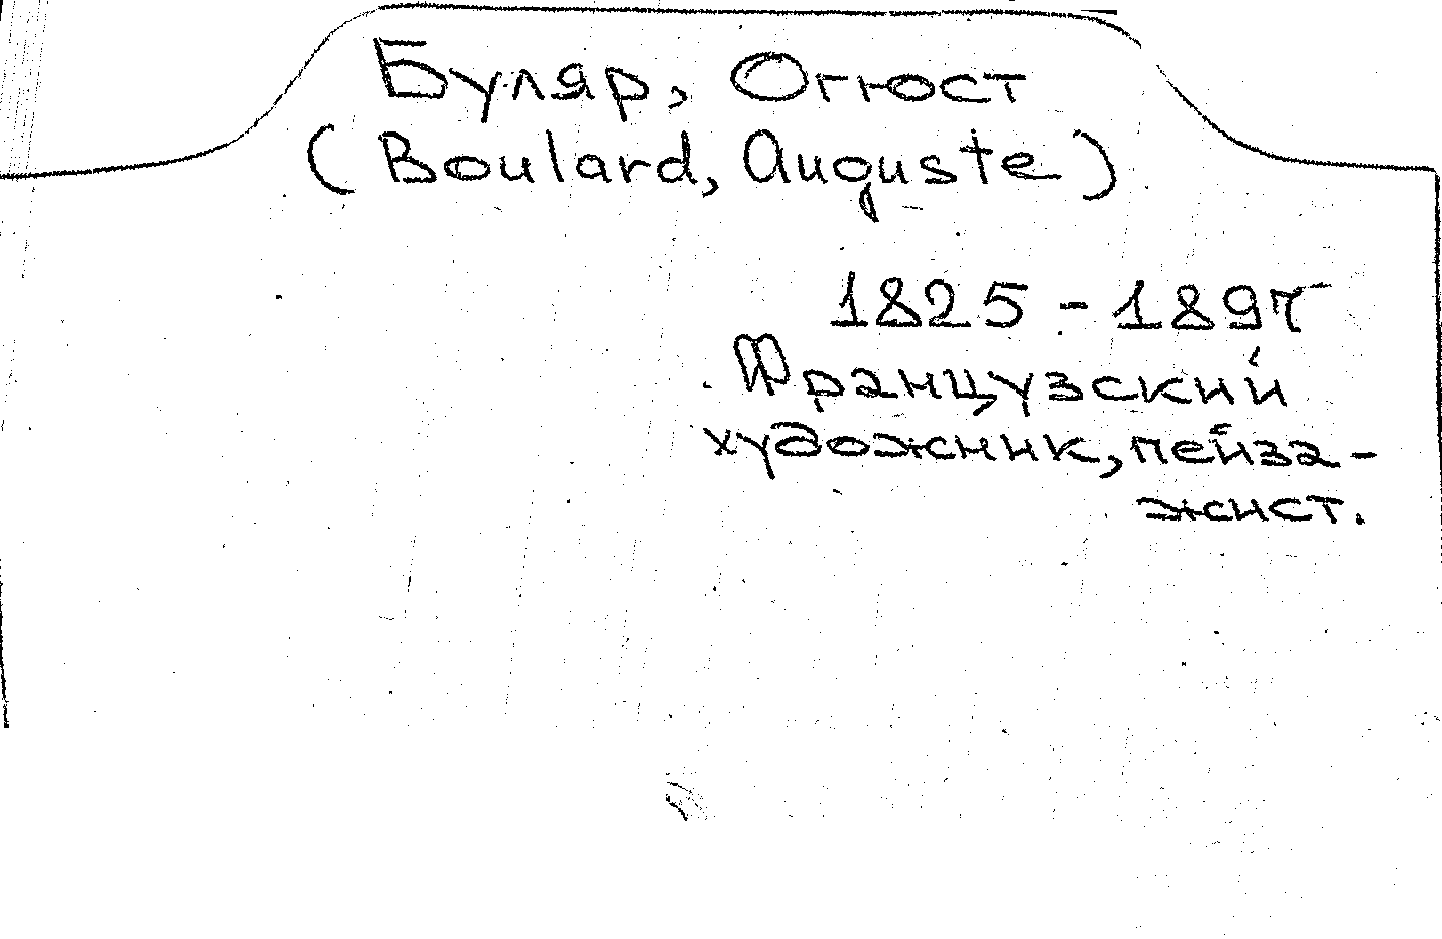 Буляр, Огюст
(Boulard, Auguste)
1825 - 1897
Французский
художник, пейза-
жист.